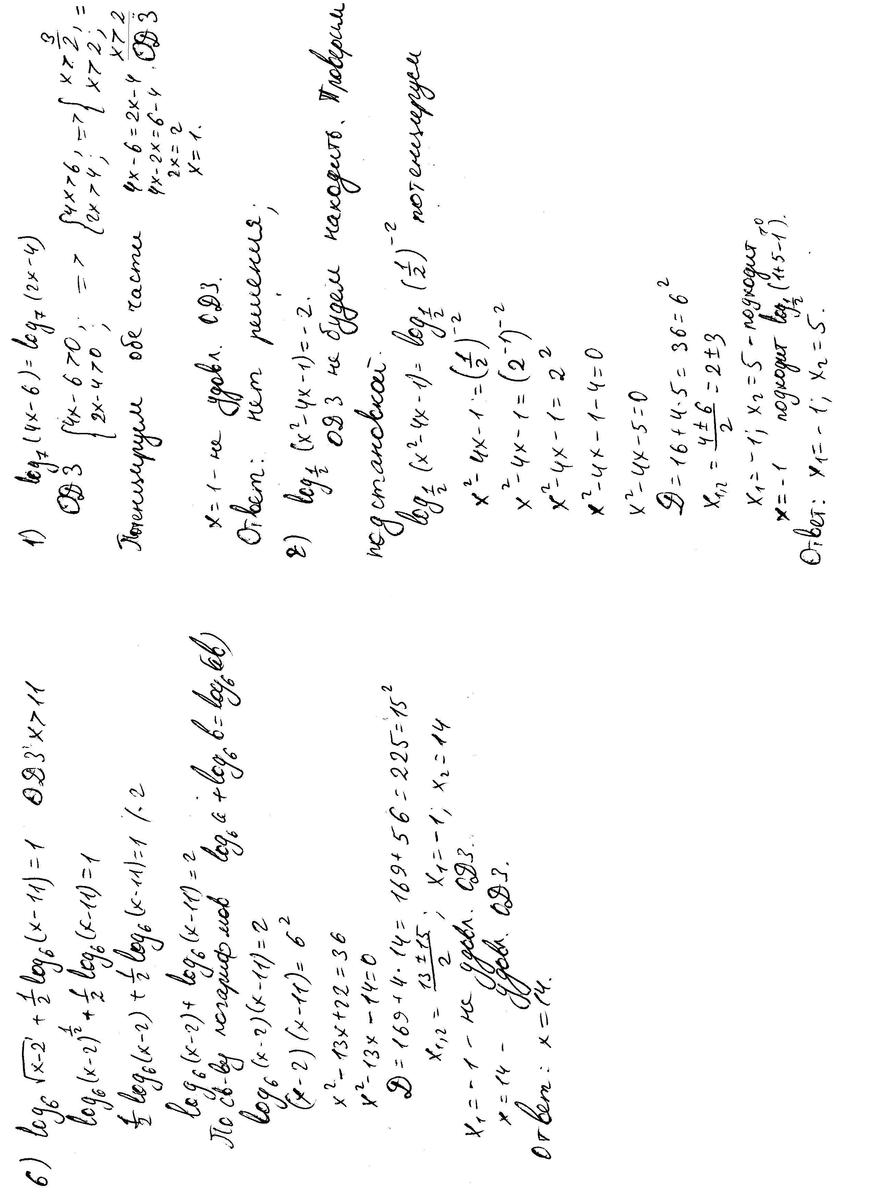 1) log₇(4x-6)=log₇(2x-4)
ОДЗ {4x-6>0; 2x-4>0; => {4x>6; 2x>4; => {x>3/2; x>2; =
x>2
ОДЗ
Потенцируем обе части 4x-6=2x-4
4x-2x=6-4
2x=2
x=1.
x=1 - не удовл. ОДЗ.
Ответ: нет решения;
2) log_{1/2}(x²-4x-1)=-2.
ОДЗ не будем находить. Проверим
подстановкой.
log_{1/2}(x²-4x-1)=log_{1/2}(1/2)⁻² потенцируем
x²-4x-1=(1/2)⁻²
x²-4x-1=(2⁻¹)⁻²
x²-4x-1=2²
x²-4x-1-4=0
x²-4x-5=0
D=16+4·5=36=6²
x₁,₂=(4±6)/2=2±3
x₁=-1; x₂=5 - подходит
x=-1 подходит log_{1/2}(1+5-1) >0
Ответ: x₁=-1; x₂=5.
6) log₆√(x-2)+1/2 log₆(x-11)=1 ОДЗ: x>11
log₆(x-2)^{1/2}+1/2 log₆(x-11)=1
1/2 log₆(x-2)+1/2 log₆(x-11)=1 /·2
log₆(x-2)+log₆(x-11)=2
По св-ву логарифмов log₆a+log₆b=log₆(ab)
log₆(x-2)(x-11)=2
(x-2)(x-11)=6²
x²-13x+22=36
x²-13x-14=0
D=169+4·14=169+56=225=15²
x₁,₂=(13±15)/2; x₁=-1; x₂=14
x₁=-1 - не удовл. ОДЗ.
x=14 - удовл. ОДЗ.
Ответ: x=14.